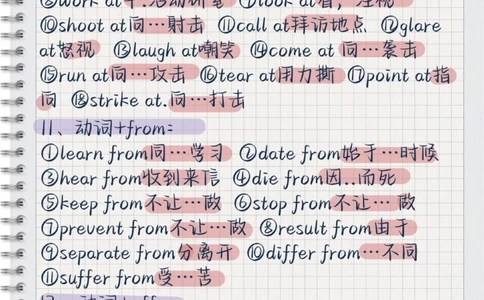 ⑧work at干.活动研究 ⑨look at看，注视
⑩shoot at向…射击 ⑪call at拜访地点 ⑫glare
at怒视 ⑬laugh at嘲笑 ⑭come at 向…袭击
⑮run at向…攻击 ⑯tear at用力撕 ⑰point at指
向 ⑱strike at.向…打击
11、动词+from:
①learn from向…学习 ②date from始于…时候
③hear from收到来信 ④die from因..而死
⑤keep from不让…做 ⑥stop from不让… 做
⑦prevent from不让…做 ⑧result from由于
⑨separate from分离开 ⑩differ from…不同
⑪suffer from受…苦